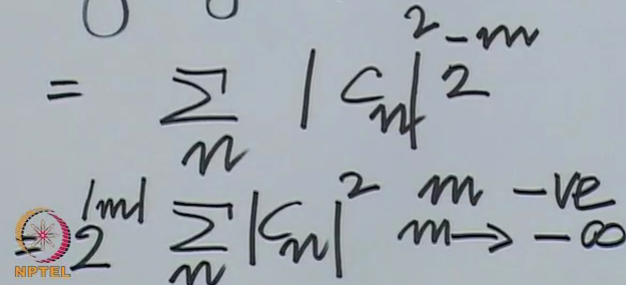 = Σ_n |C_n|² 2^{-m}
= 2^{|m|} Σ_n |C_n|² m -ve
m → -∞
NPTEL